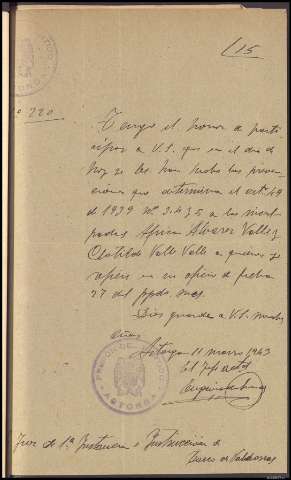 115
º 220
Tengo el honor de parti
cipar a V.S. que en el dia de
hoy se les han hecho las preven
ciones que determina el artº 49
de 1939 nº 3. 4 y 5 a las
Africa Alvarez Valle y
Clotilde Valle Valle a quienes se
en su oficio de fecha
27 del ppdo. mes.
Dios guarde a V.S. muchos
años
Astorga 11 marzo 1943
El
ASTORGA
Juez de 1ª Instancia e Instrucción de
Barco de Valdeorras